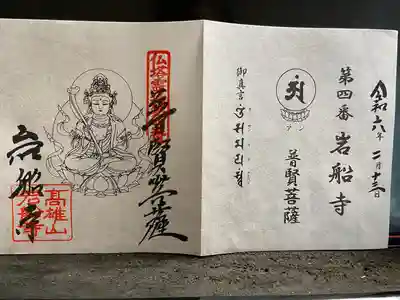 令和六年二月十三日
第四番 岩船寺
アン
普賢菩薩
御真言
普賢菩薩
岩船寺
高雄山
岩船寺